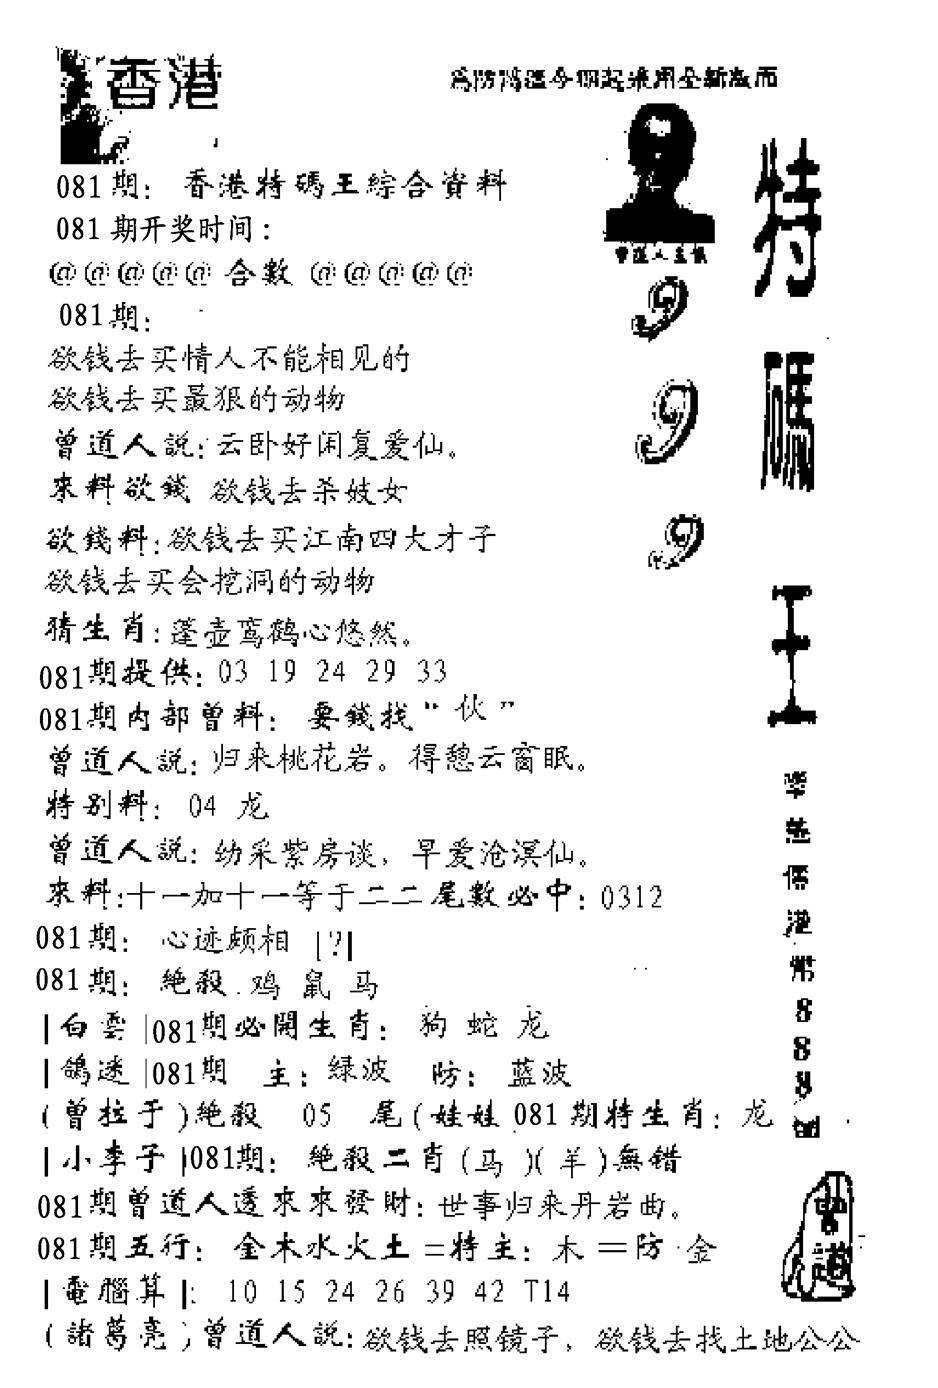 香港
為防偽造今期起采用全新版面
081期：香港特碼王綜合資料
081期开奖时间：
@@@@@合數@@@@@
081期：
欲钱去买情人不能相见的
欲钱去买最狠的动物
曾道人說：云卧好闲复爱仙。
來料欲錢 欲钱去杀妓女
欲錢料：欲钱去买江南四大才子
欲钱去买会挖洞的动物
猜生肖：蓬壶鸾鹤心悠然。
081期提供：03 19 24 29 33
081期内部曾料：要錢找“伙”
曾道人說：归来桃花岩。得憩云窗眠。
特别料：04 龙
曾道人說：幼采紫房谈，早爱沧溟仙。
來料：十一加十一等于二二尾數必中：0312
081期：心迹颇相 |?|
081期：絶殺 鸡 鼠 马
|白雲|081期必開生肖：狗 蛇 龙
|鴿迷|081期 主：绿波 防：蓝波
(曾拉于)絶殺 05 尾(娃娃 081期特生肖：龙
|小李子|081期：絶殺二肖(马)(羊)無錯
081期曾道人透來來發財：世事归来丹岩曲。
081期五行：金木水火土=特主：木=防 金
|電腦算|：10 15 24 26 39 42 T14
(諸葛亮)曾道人說：欲钱去照镜子，欲钱去找土地公公
曾道人主饌
9
9
9
特
碼
王
港
幣
8
8
8
曾道